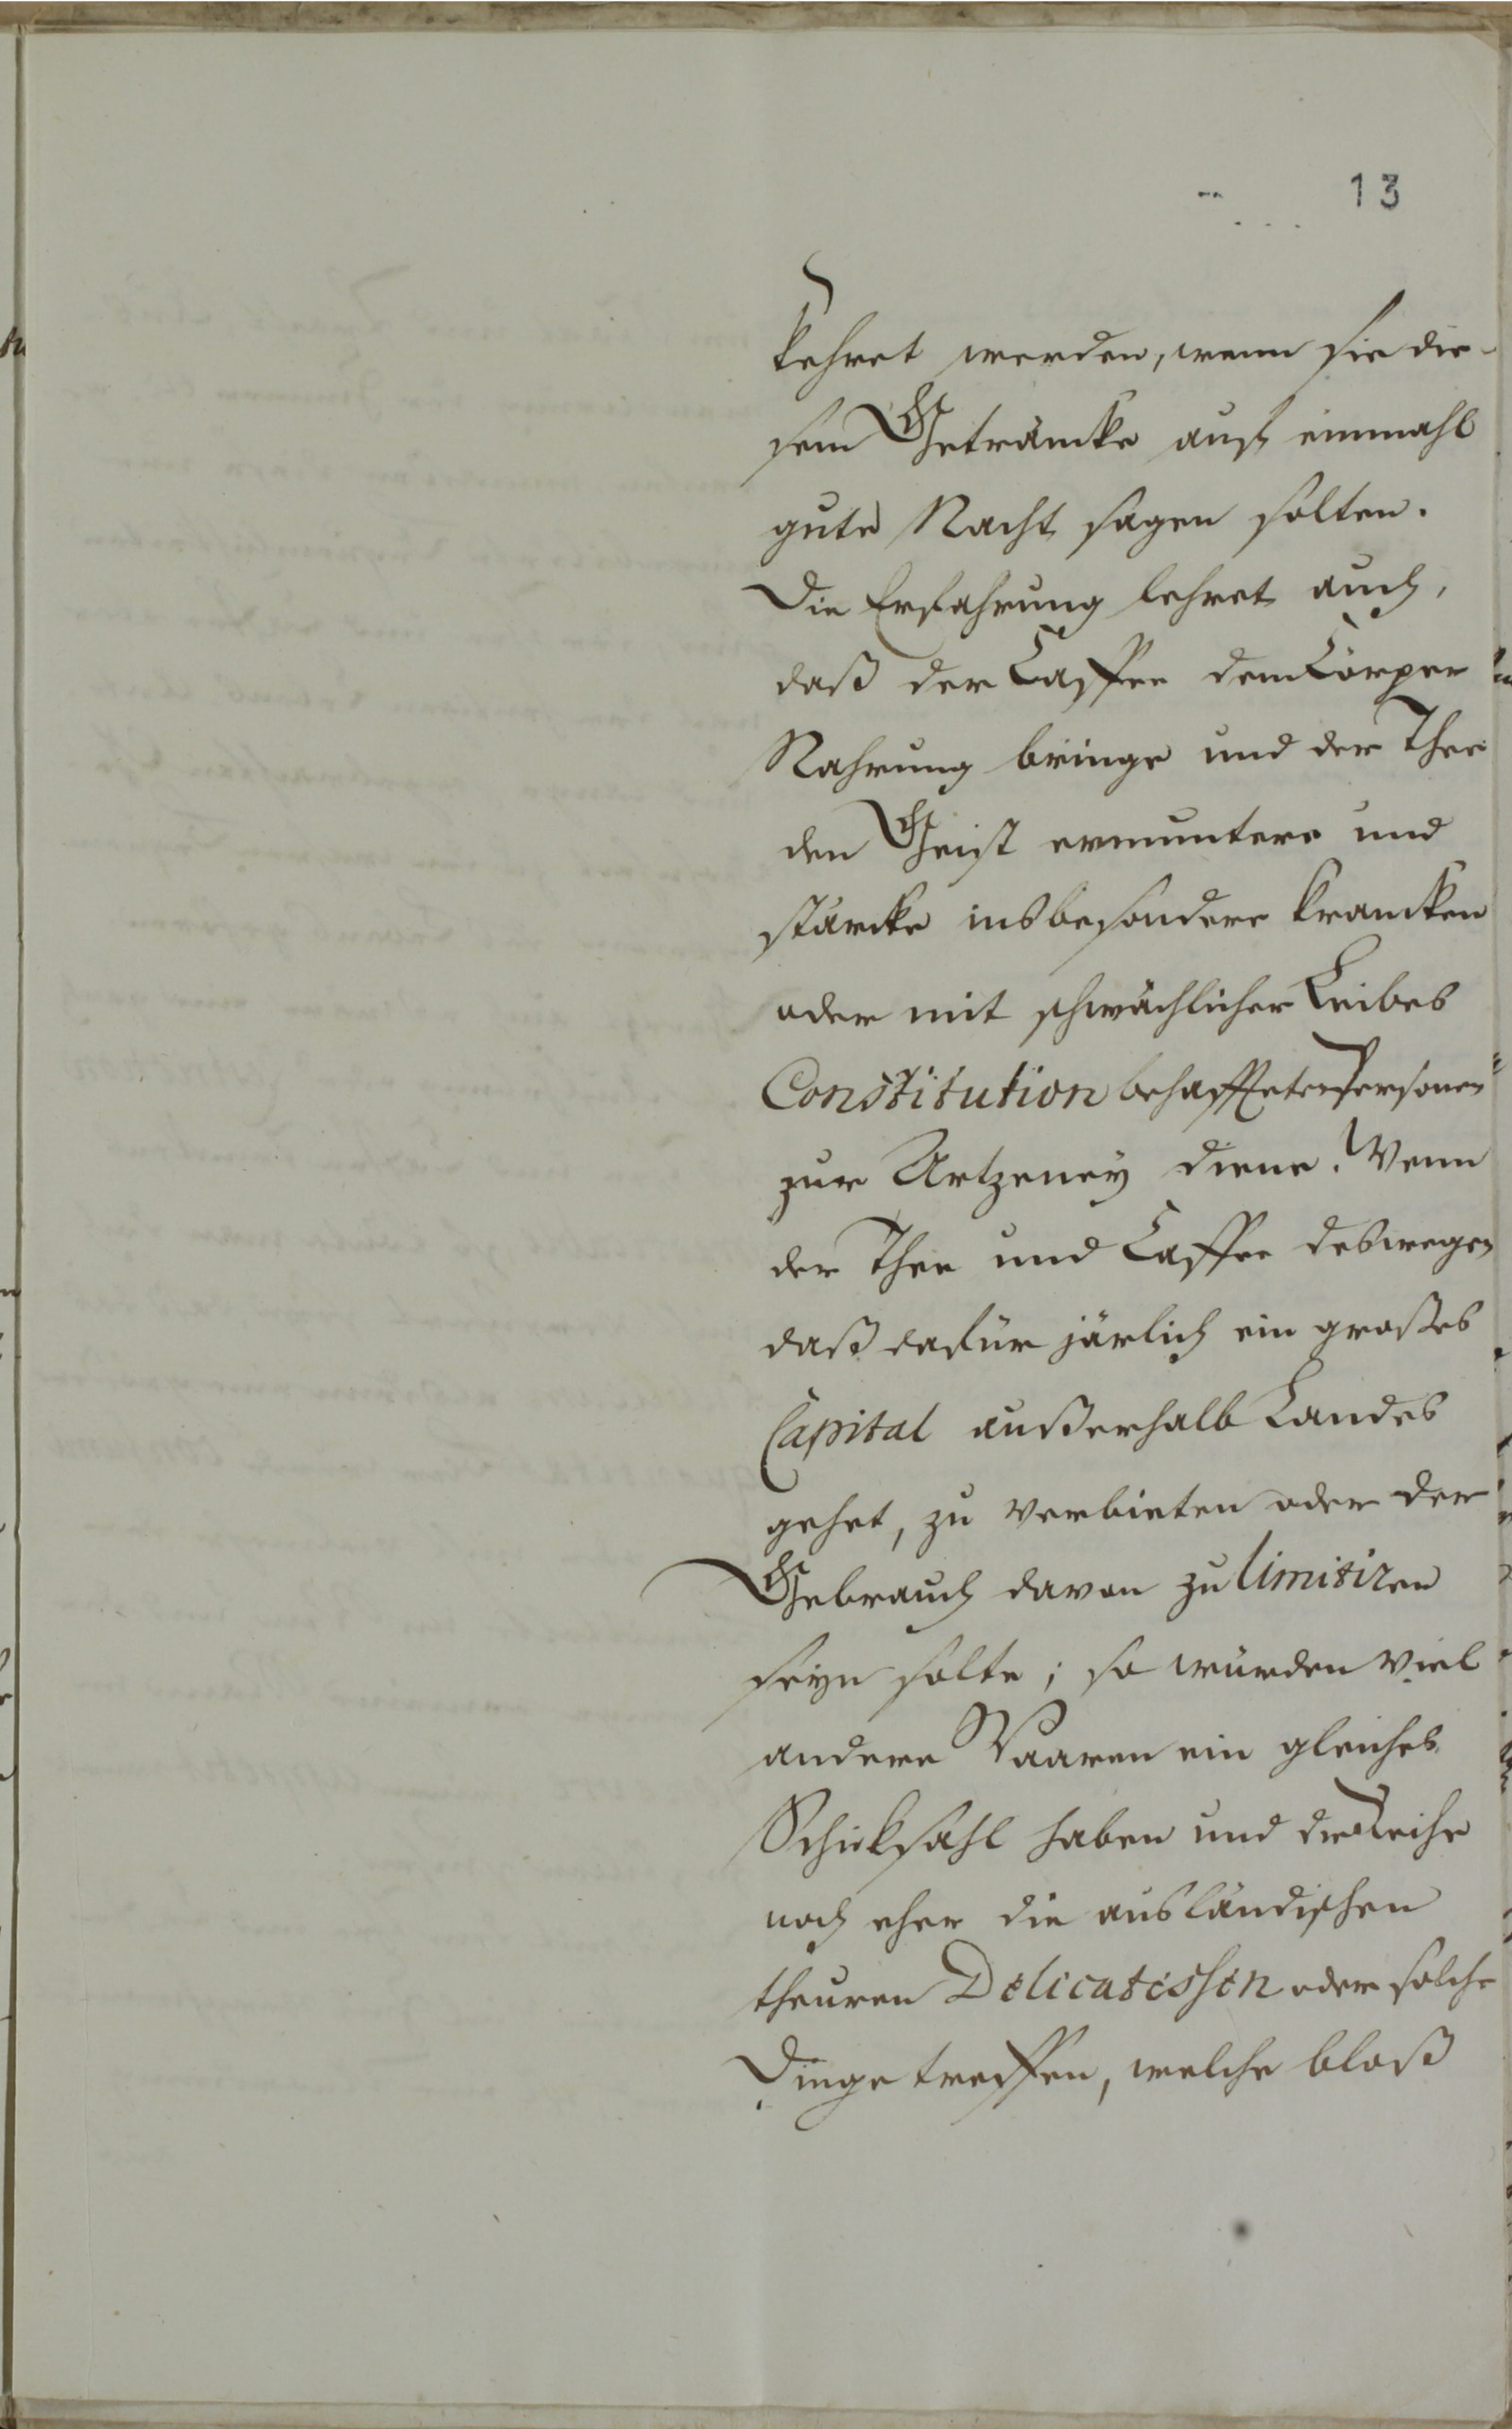 13
kehret werden, wenn sie die-
sem Geträncke auf einmahl
gute Nacht sagen solten.
Die Erfahrung lehret auch,
daß der Caffee dem Cörper
Nahrung bringe und der Thee
den Geist ermuntere und
stärcke insbesondere krancken
oder mit schwächlicher Leibes
Constitution behaffteten Personen
zur Artzeney diene. Wenn
der Thee und Caffee deswegen
daß dafür järlich ein großes
Capital außerhalb Landes
gehet, zu verbieten oder der
Gebrauch davon zu limitiren
seyn solte; so würden viel
andere Waaren ein gleiches
Schicksahl haben und die Reihe
noch eher die ausländischen
theuren Delicatessen oder solche
Dinge treffen, welche bloß